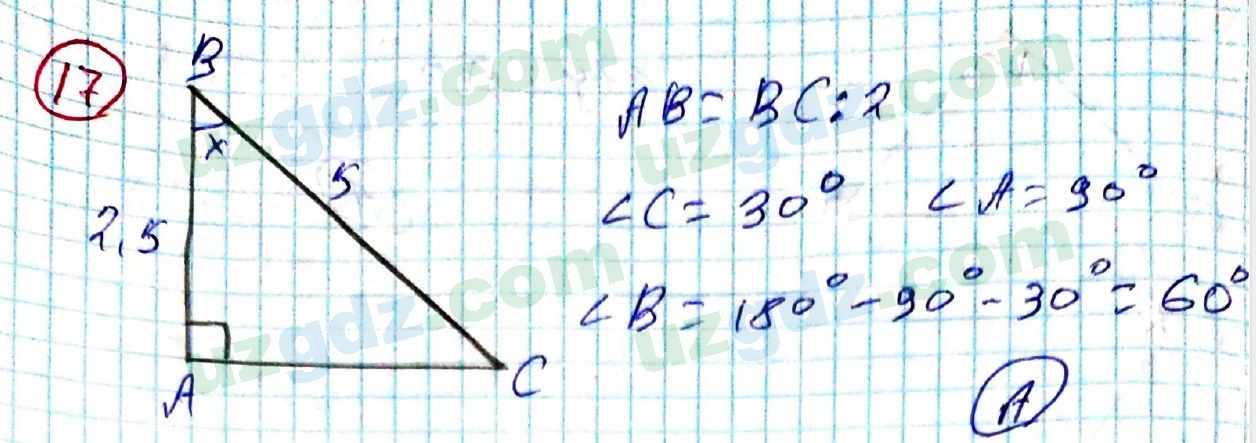 17
B
x
5
2,5
A
C
AB = BC : 2
∠C = 30° ∠A = 90°
∠B = 180° - 90° - 30° = 60°
A
uzgdz.com
uzgdz.com
uzgdz.com
uzgdz.com